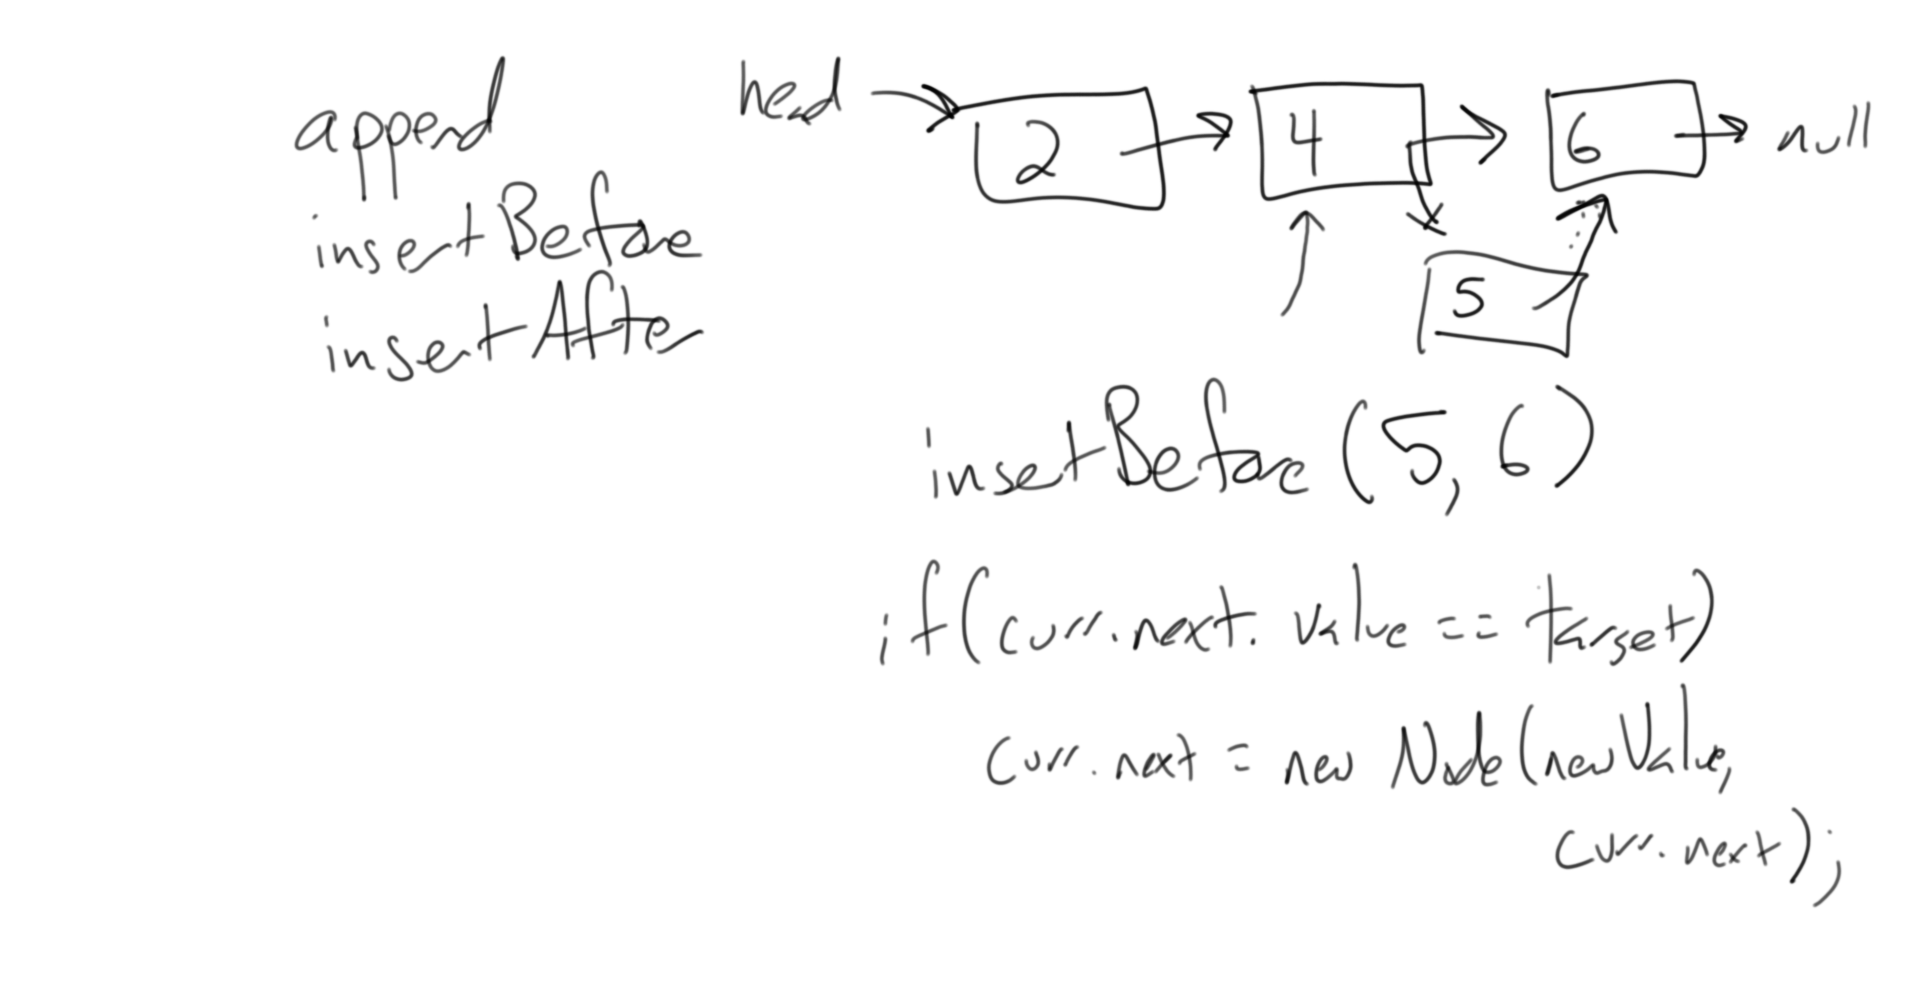 append
insertBefore
insertAfter
head
2
4
6
null
5
insetBefore (5, 6)
if(curr.next.value == target)
curr.next = new Node(newValue,
curr.next);